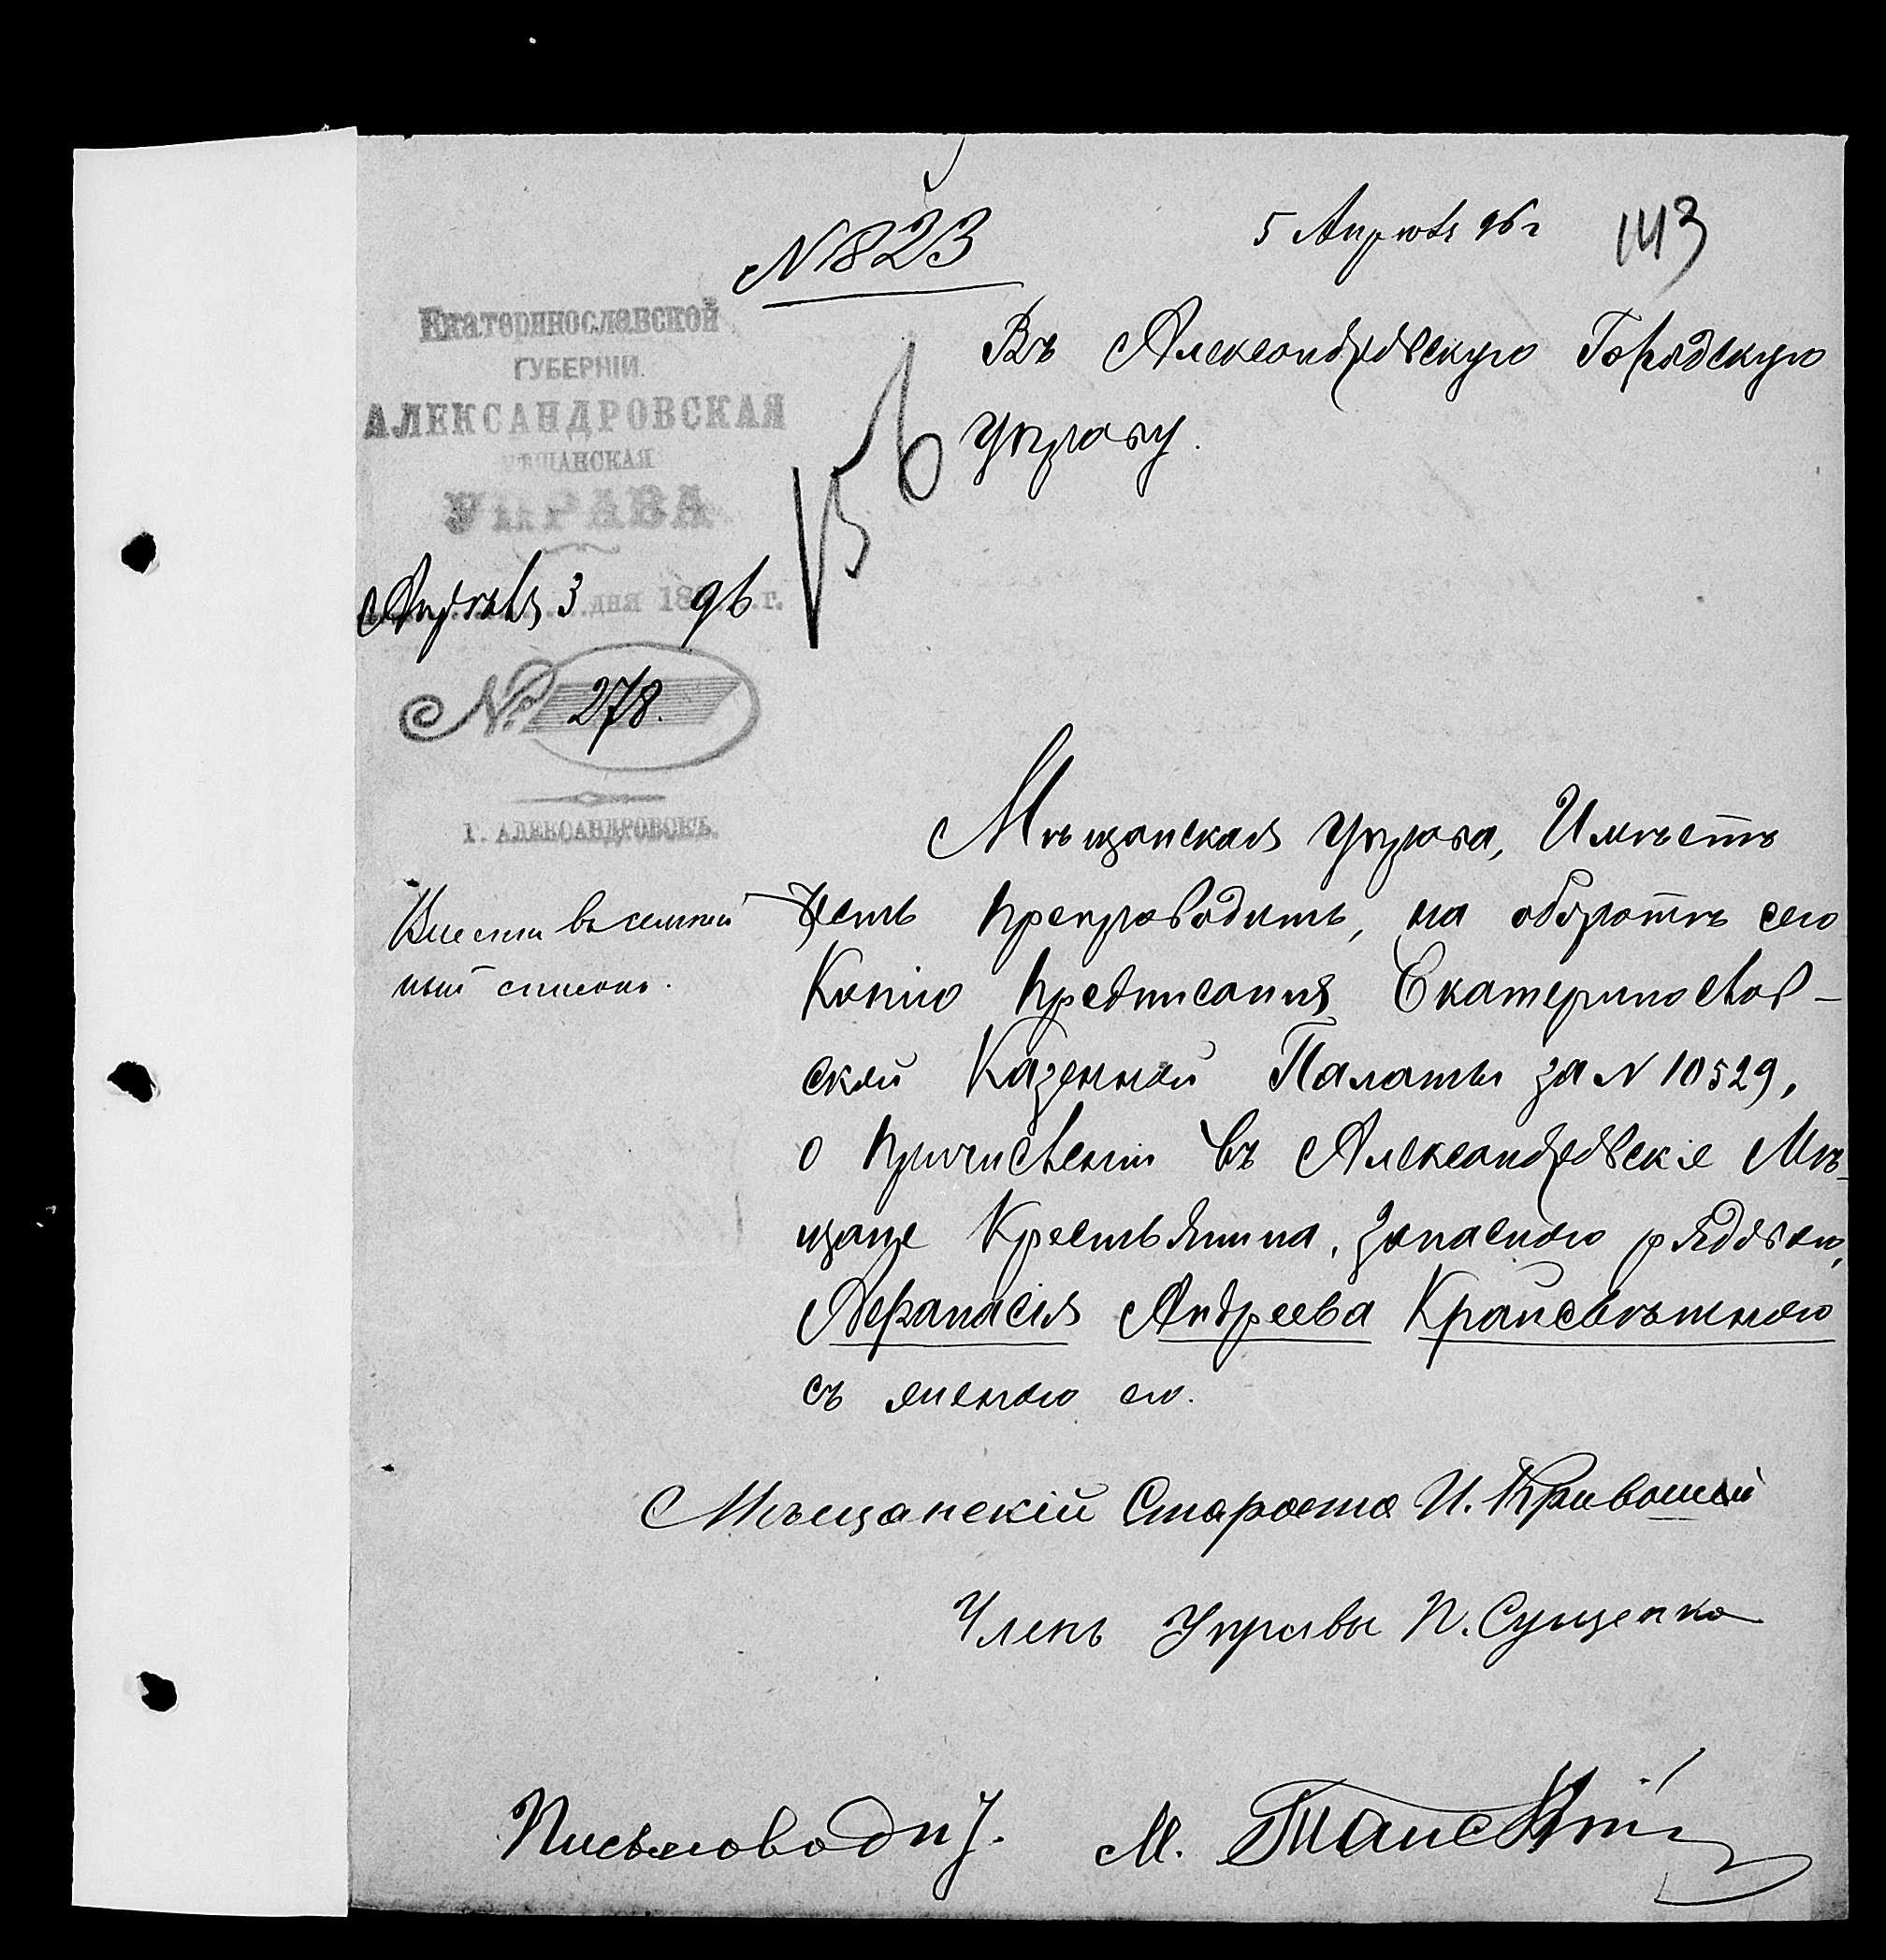 № 823
5 Апрѣля 96 г
143
Екатеринославской
ГУБЕРНІИ.
АЛЕКСАНДРОВСКАЯ
МѢЩАНСКАЯ
УПРАВА
Апрѣля 3 дня 1896 г.
№ 278.
Г. АЛЕКСАНДРОВСКЪ.
Въ Александровскую Городскую
Управу.
Внести въ семей
ный списокъ.
Мѣщанская Управа, Имѣетъ
честь препроводить, на оборотѣ сего
Копію предписанія Екатеринослав-
ской Казенной Палаты за N 10529,
о причисленіи въ Александровскіе Мѣ-
щане Крестьянина, запасного рядового,
Афанасія Андреева Крайсвѣтного
съ женою его.
Мѣщанскій Староста И. Кривошей
Членъ Управы П. Сущенко
Письмовод
М.